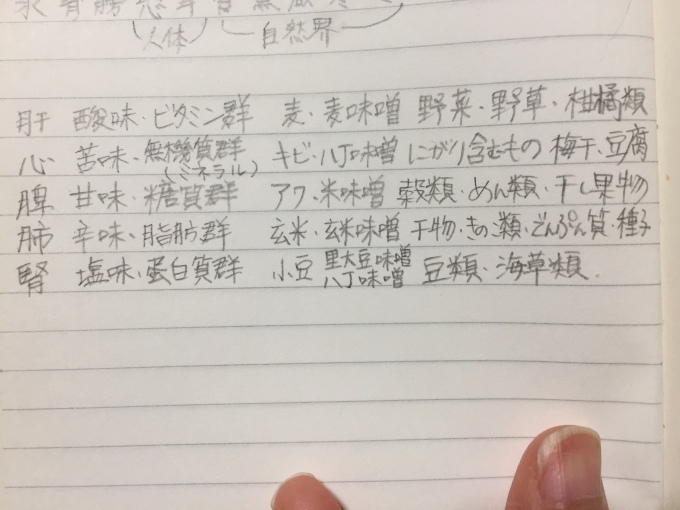 人体 自然界
肝 酸味・ビタミン群 麦・麦味噌 野菜・野草・柑橘類
心 苦味・無機質群(ミネラル) キビ・八丁味噌 にがり含むもの 梅干、豆腐
脾 甘味・糖質群 アワ・米味噌 穀類・めん類・干し果物
肺 辛味・脂肪群 玄米・玄米味噌 干物・きのこ類・でんぷん質・種子
腎 塩味・蛋白質群 小豆 里大豆味噌 八丁味噌 豆類・海草類.